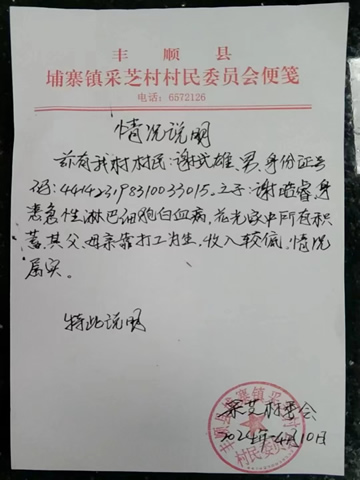 丰顺县
埔寨镇采芝村村民委员会便笺
电话：6572126
情况说明
兹有我村村民：谢武雄、男、身份证号
码：441423198310033015。之子：谢皓睿，身
患急性淋巴细胞白血病，花光家中所有积
蓄，其父、母亲靠打工为生，收入较低，情况
属实。
特此说明
采芝村委会
2024年4月10日
丰顺县埔寨镇采芝村
村民委员会